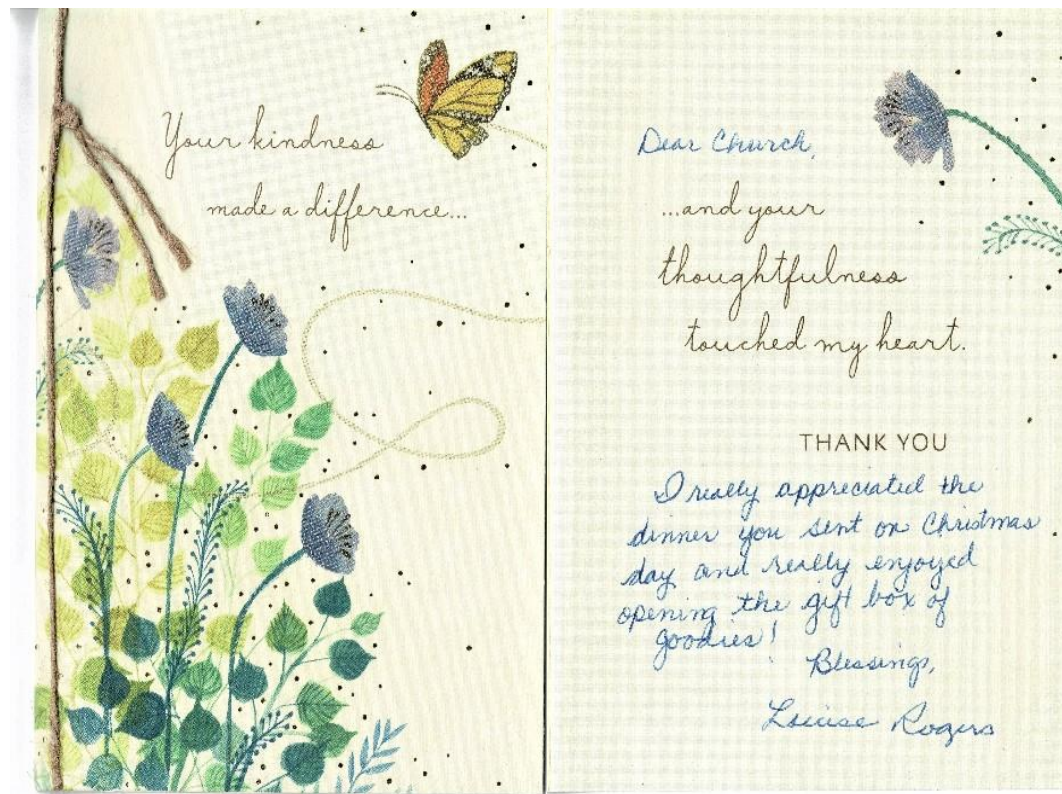 Your kindness
made a difference...
Dear Church,
...and your
thoughtfulness
touched my heart.
THANK YOU
I really appreciated the
dinner you sent on Christmas
day and really enjoyed
opening the gift box of
goodies!
Blessings,
Louise Rogers